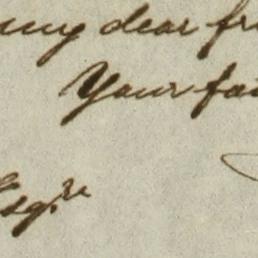 my dear fr
Your fai
Esqre